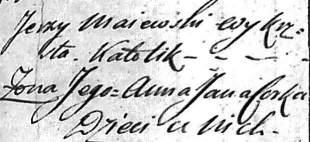 Jerzy Maiewski wykrz-
ta. Katolik - - - -
Żona Jego = Anna Jana Corka
Dzieci u nich -